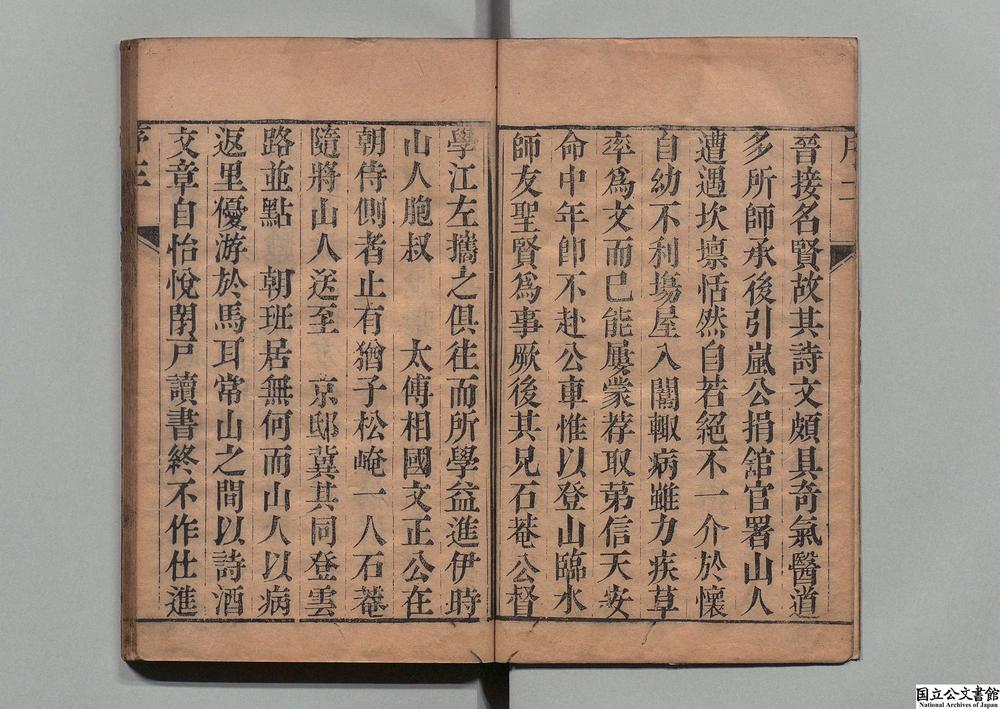 晉接名賢故其詩文頗具奇氣醫道
多所師承後引嵐公捐舘官署山人
遭遇坎壈恬然自若絕不一介於懷
自幼不利塲屋入闈輙病雖力疾草
率爲文而已能屢蒙荐取第信天安
命中年卽不赴公車惟以登山臨水
師友聖賢爲事厥後其兄石菴公督
學江左攜之俱往而所學益進伊時
山人胞叔 太傅相國文正公在
朝侍側者止有猶子松崦一人石菴
隨將山人送至 京邸冀其同登雲
路並點 朝班居無何而山人以病
返里優游於馬耳常山之間以詩酒
文章自怡悅閉戸讀書終不作仕進
序三
国立公文書館
National Archives of Japan